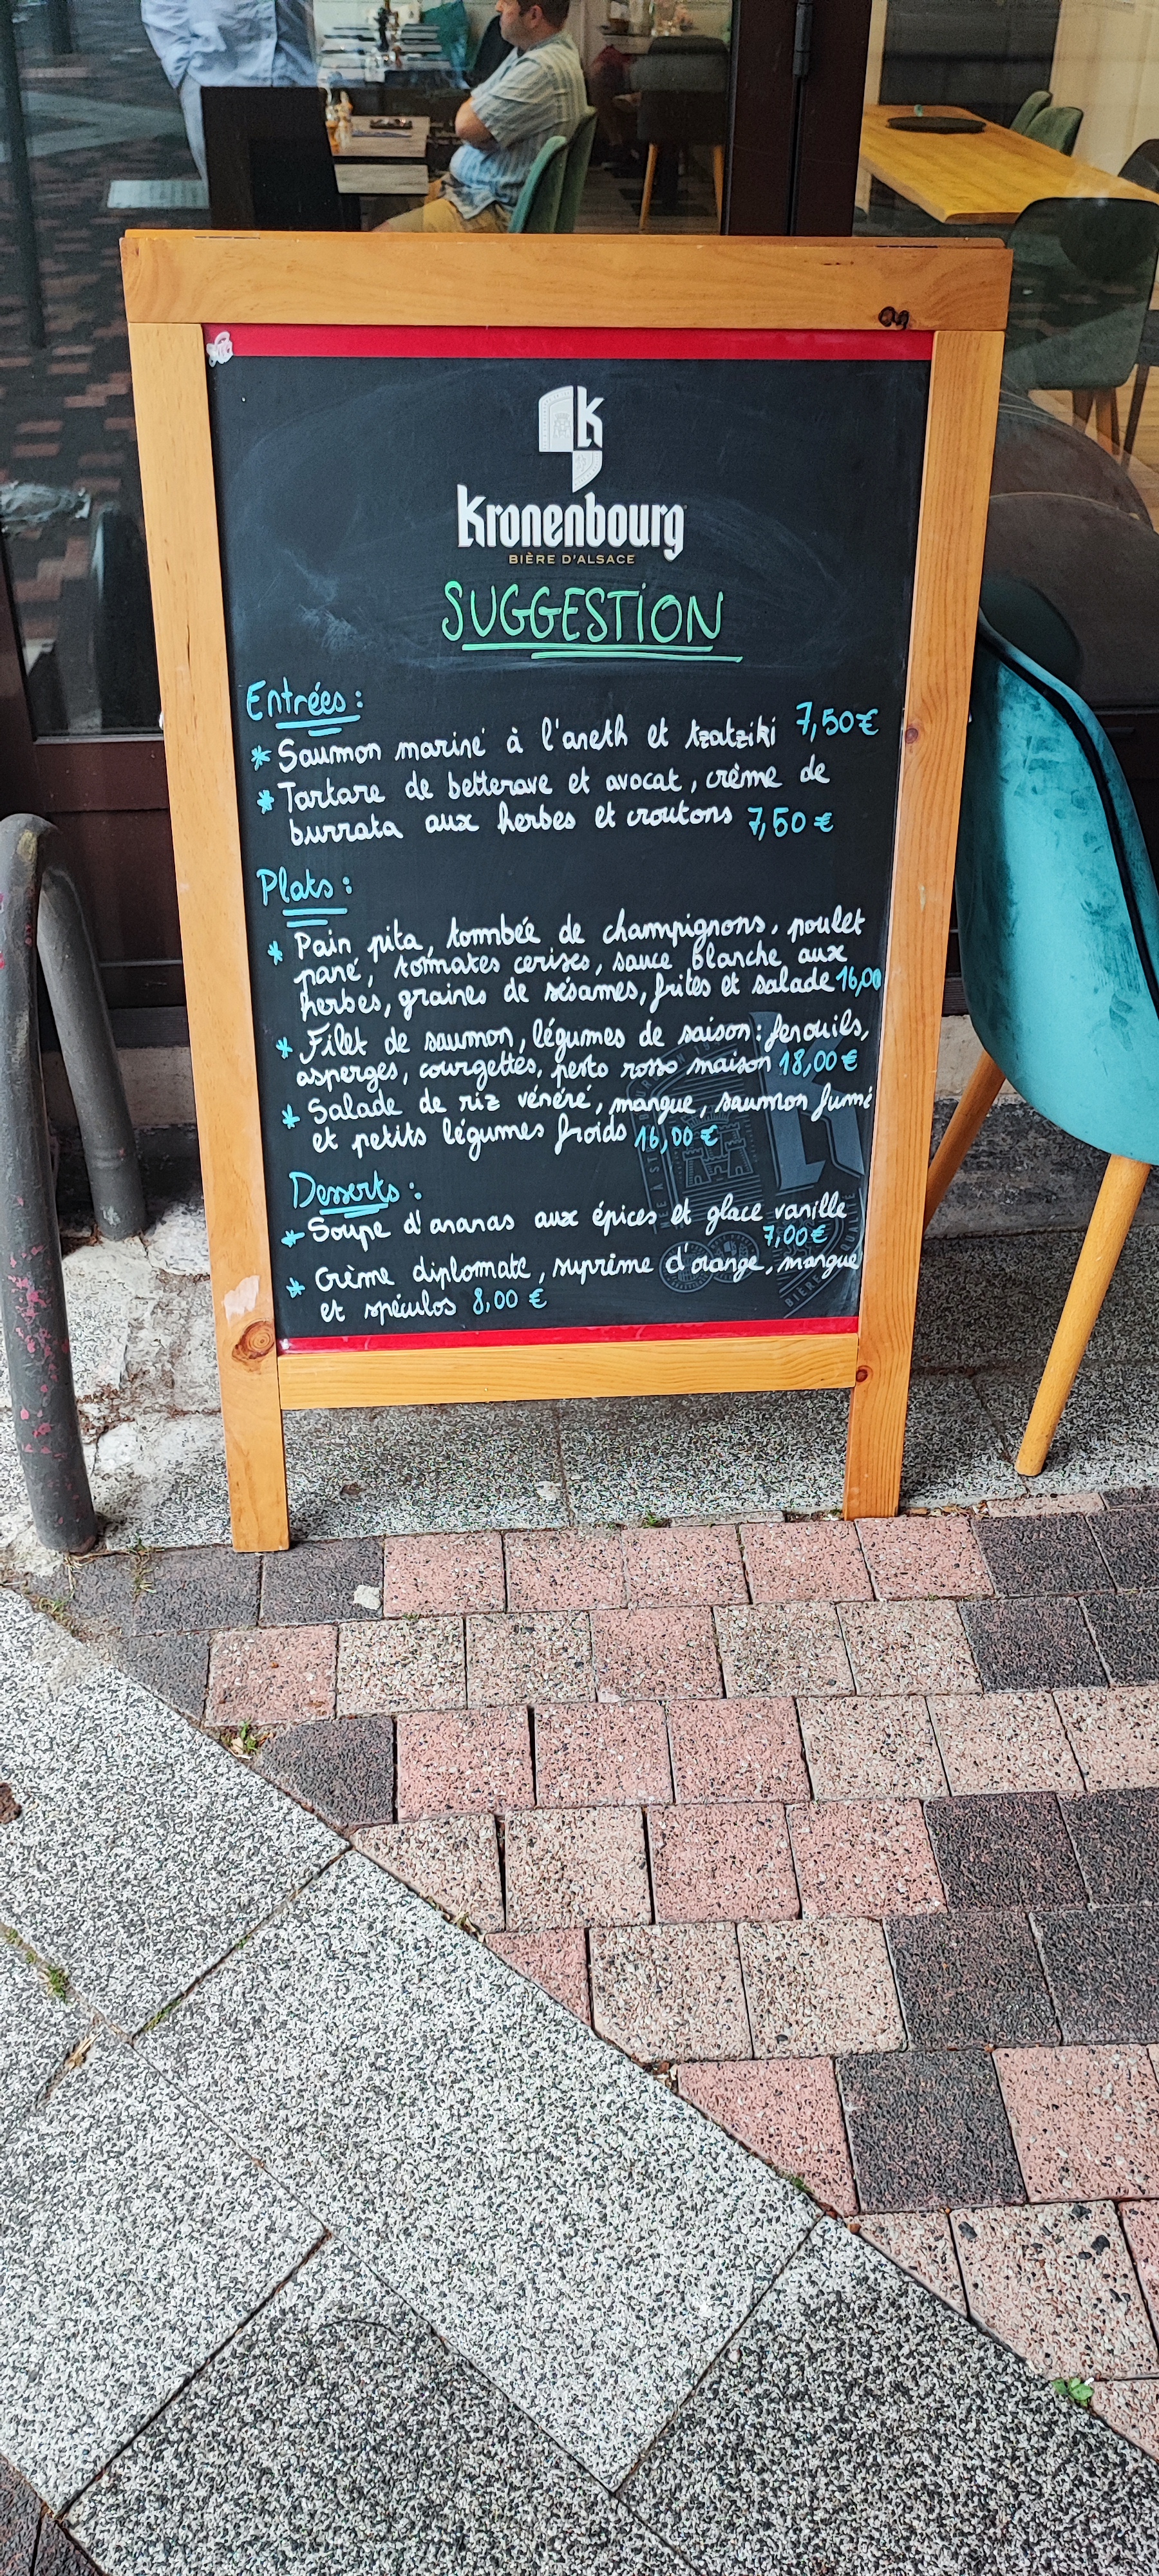 Kronenbourg
BIÈRE D'ALSACE
SUGGESTION
Entrées :
* Saumon mariné à l'aneth et tzatziki 7,50€
* Tartare de betterave et avocat, crème de
burrata aux herbes et croutons 7,50 €
Plats :
* Pain pita, tombée de champignons, poulet
pané, tomates cerises, sauce blanche aux
herbes, graines de sésames, frites et salade 16,00
* Filet de saumon, légumes de saison : fenouils,
asperges, courgettes, pesto rosso maison 18,00 €
* Salade de riz vénéré, mangue, saumon fumé
et petits légumes froids 16,00 €
Desserts :
* Soupe d'ananas aux épices et glace vanille
7,00 €
* Crème diplomate, suprême d'orange, mangue
et spéculos 8,00 €